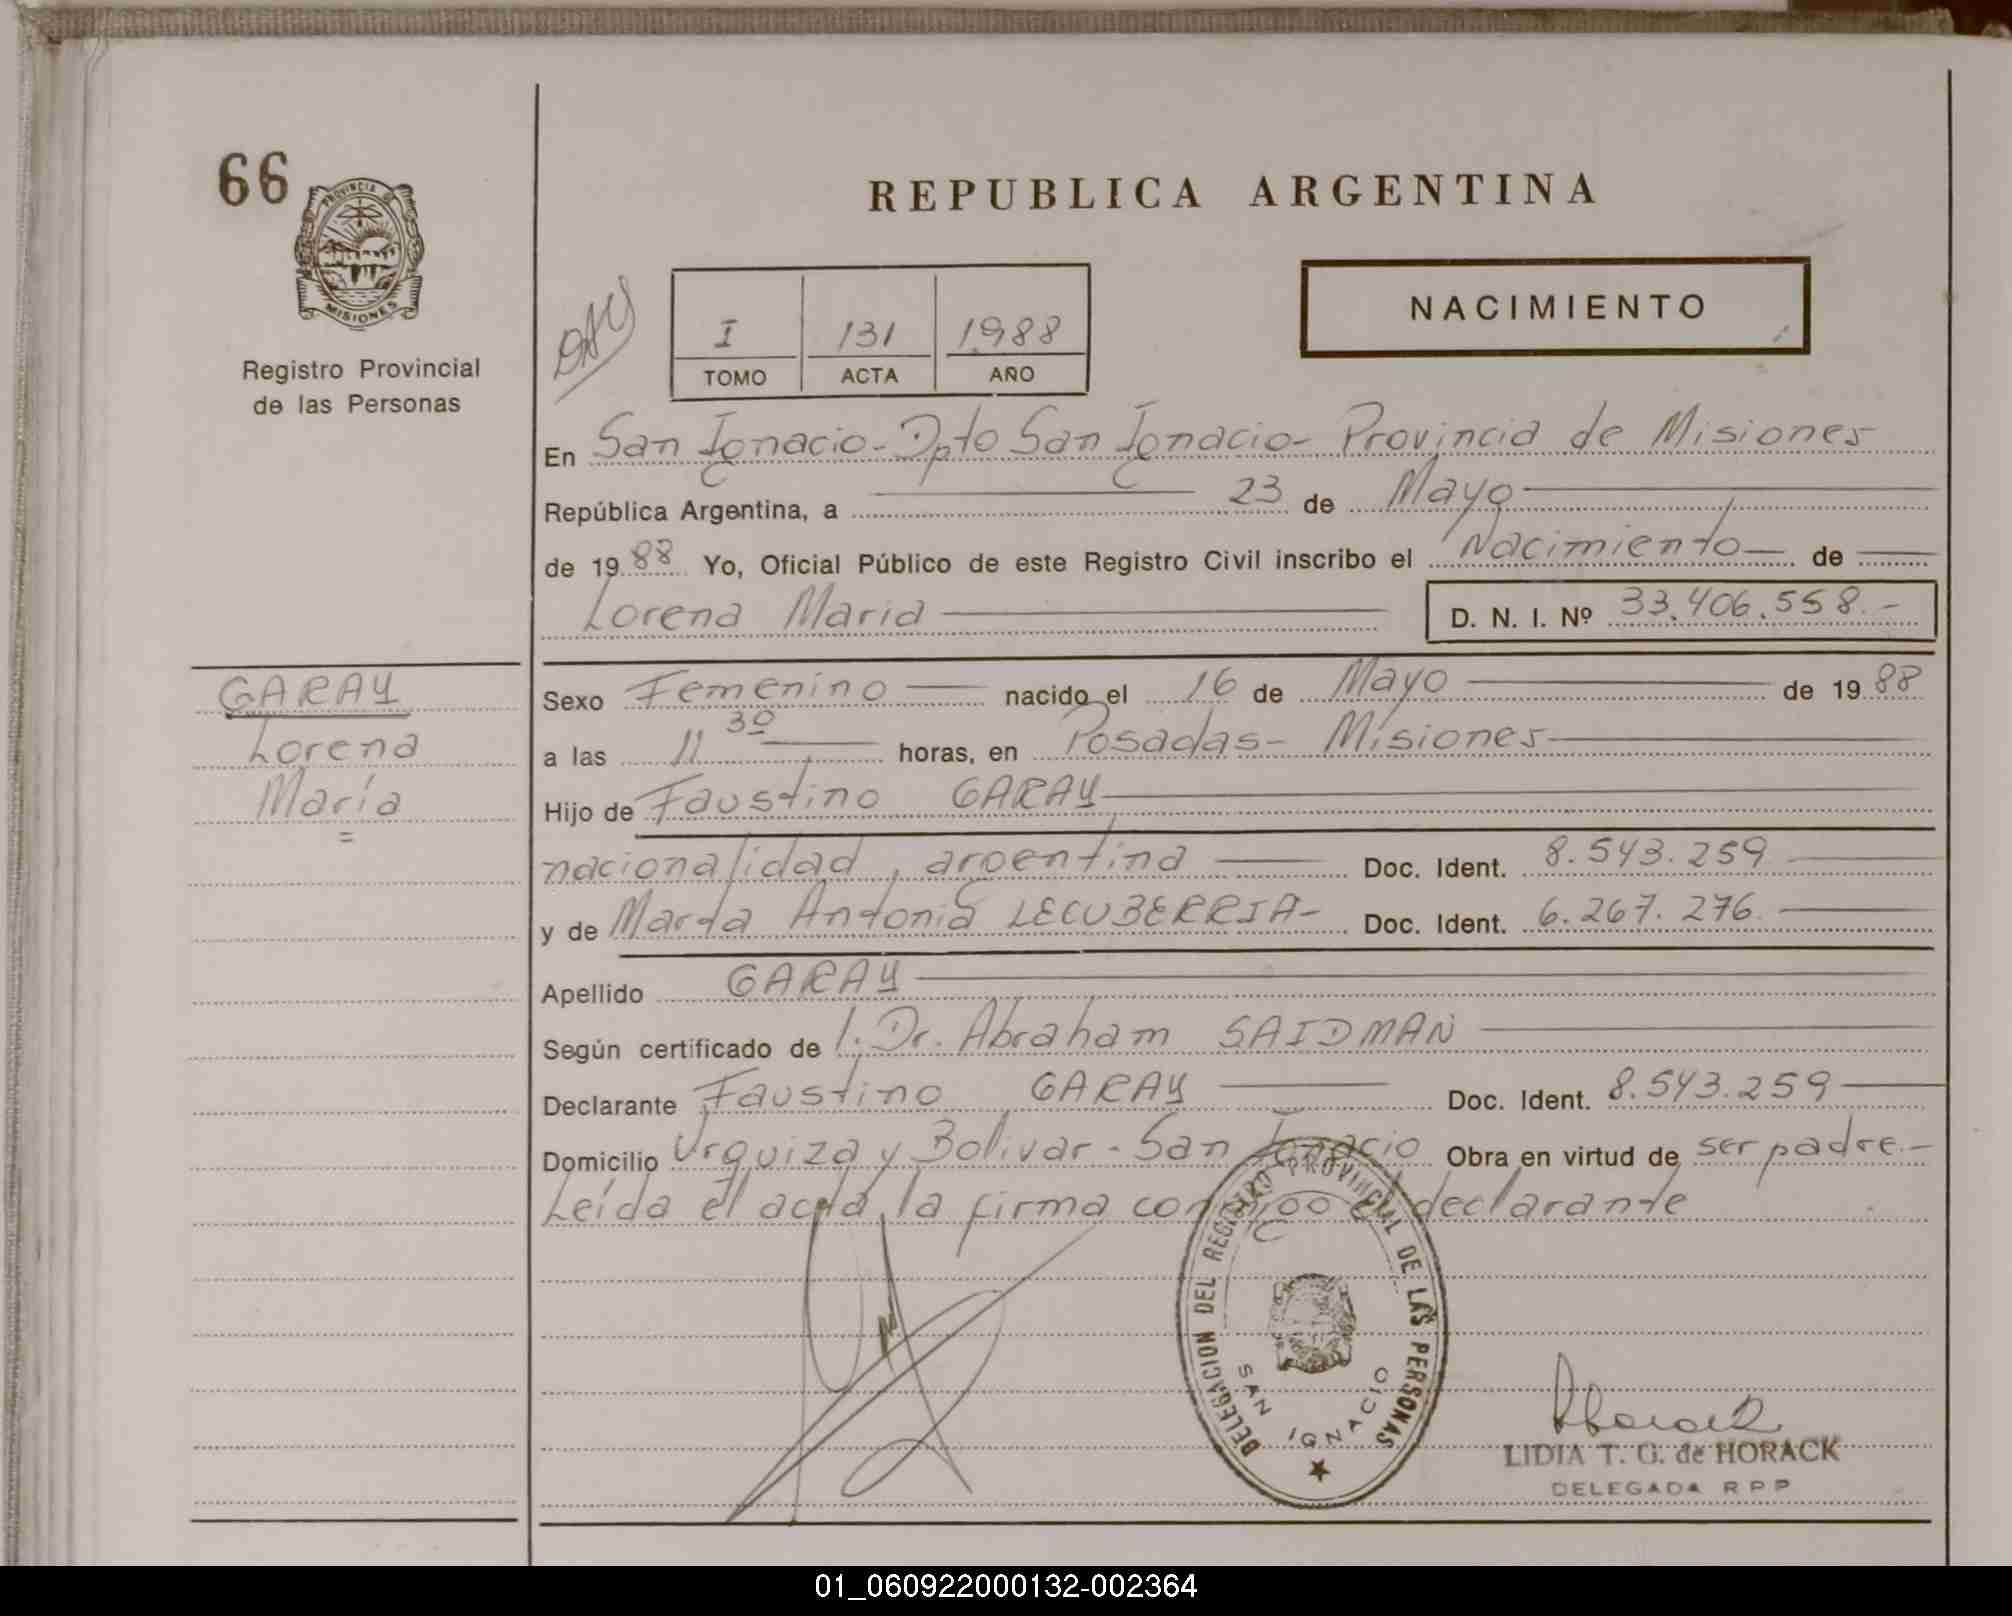 66
PROVINCIA DE
MISIONES
Registro Provincial
de las Personas
REPUBLICA ARGENTINA
I 131 1988
TOMO ACTA AÑO
NACIMIENTO
En San Ignacio - Dpto San Ignacio - Provincia de Misiones
República Argentina, a 23 de Mayo
de 1988 Yo, Oficial Público de este Registro Civil inscribo el Nacimiento de
Lorena Maria D. N. I. Nº 33.406.558.-
GARAY
Lorena
María
Sexo Femenino nacido el 16 de Mayo de 1988
a las 11 30 horas, en Posadas - Misiones
Hijo de Faustino GARAY
nacionalidad, argentina Doc. Ident. 8.543.259
y de Marta Antonia LECUBERRIA- Doc. Ident. 6.267.276.
Apellido GARAY
Según certificado de l. Dr. Abraham SAIDMAN
Declarante Faustino GARAY Doc. Ident. 8.543.259
Domicilio Urquiza y Bolivar - San Ignacio Obra en virtud de ser padre.-
Leída el acta, la firma conmigo el declarante
DELEGACION DEL REGISTRO PROVINCIAL DE LAS PERSONAS
SAN IGNACIO
LIDIA T. G. de HORACK
DELEGADA R P P
01_060922000132-002364